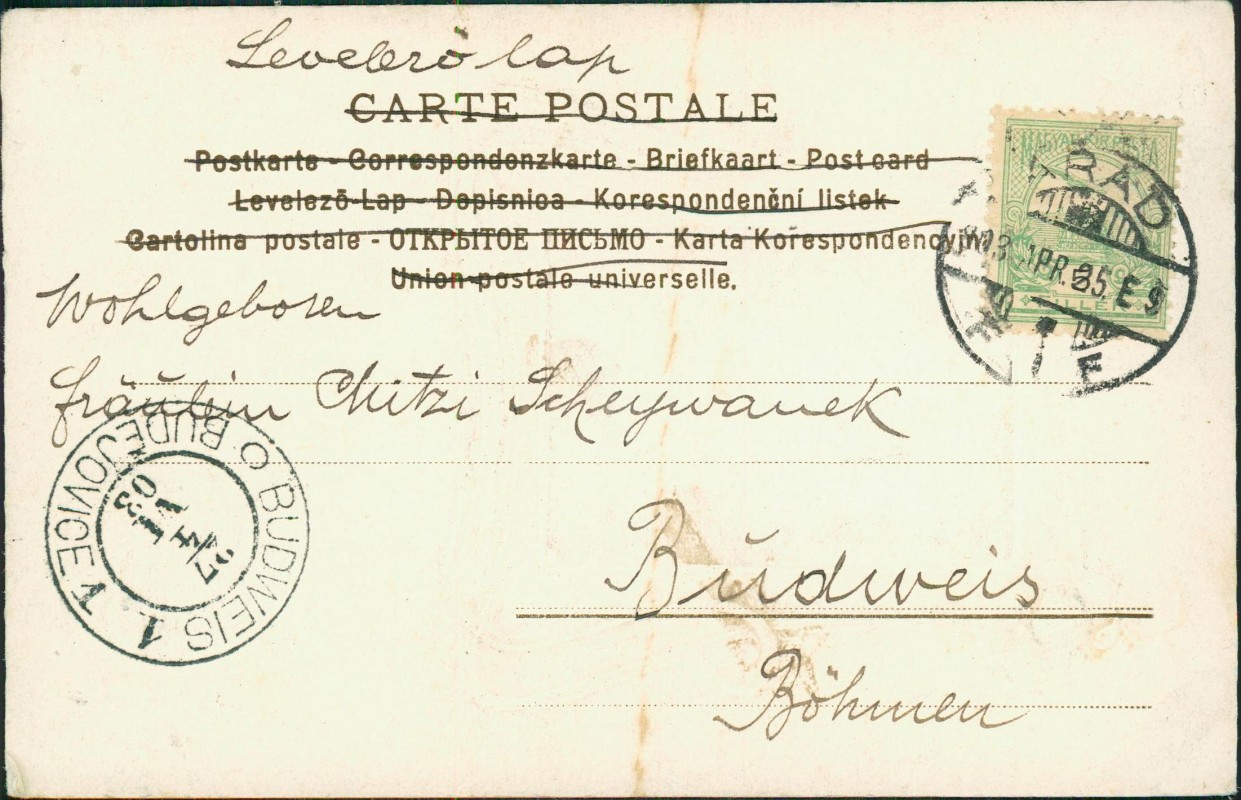 Levelező lap
CARTE POSTALE
Postkarte - Correspondenzkarte - Briefkaart - Post card
Levelező-Lap - Dopisnica - Korespondenční listek
Cartolina postale - ОТКРЫТОЕ ПИСЬМО - Karta Korespondencyjna
Union postale universelle.
ARAD
903 APR. 25. E 9
FILLÉR
Wohlgeboren
Fräulein Mitzi Scheywanek
BUDWEIS 1 BUDĚJOVICE 1
27/4
Budweis
Böhmen